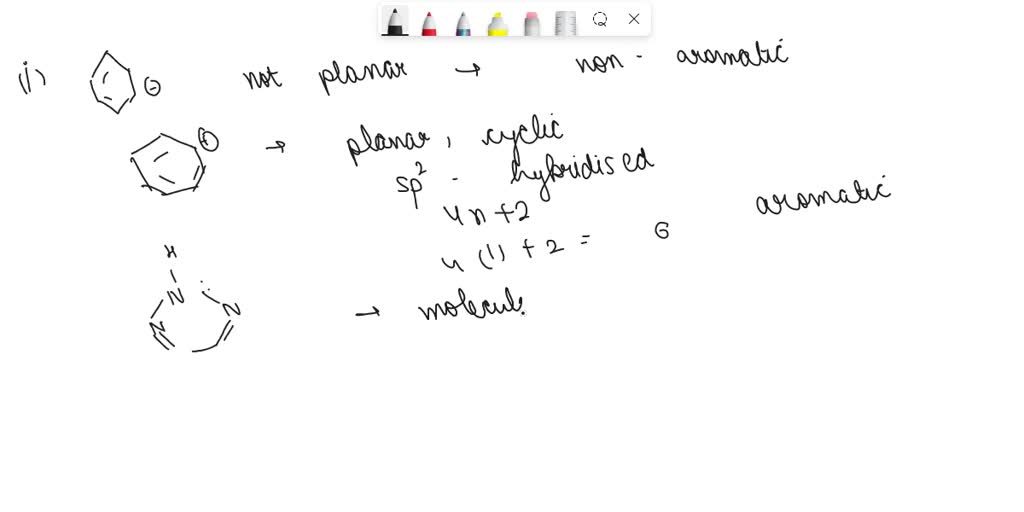 (i) ⊖ not planar → non - aromatic
⊕ → planar, cyclic
sp² - hybridised
4n+2
4(1)+2 = 6 aromatic
H
N
N N
→ molecul